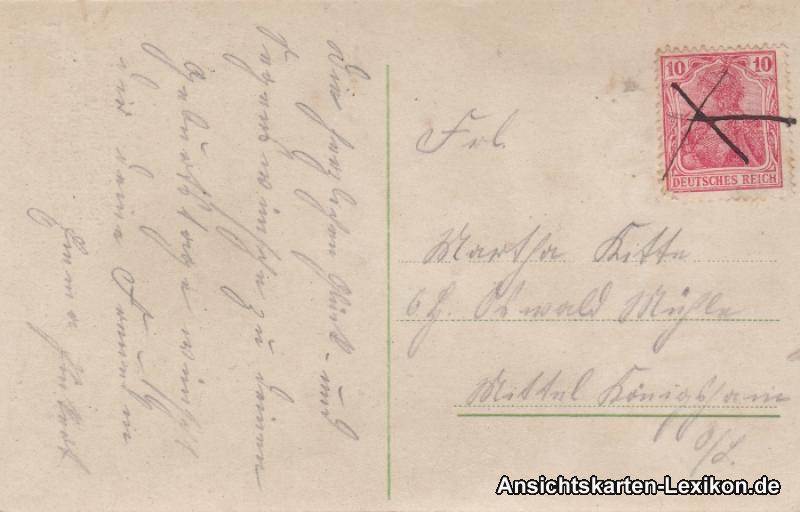 Die herzlichen Glück- und
Segenswünsche zu deinem
Geburtstage wünscht
dir deine Freundin
Emma
10 10
DEUTSCHES REICH
Frl.
Martha Kitte
b. H. Oswald Mühle
Mittel Königshain
O/L.
Ansichtskarten-Lexikon.de